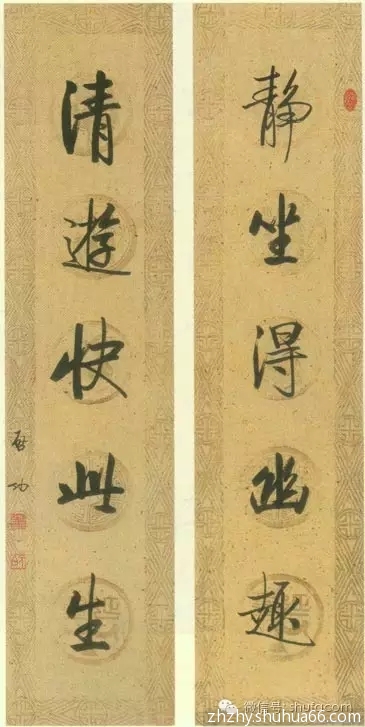 静坐得幽趣
清遊快此生
启功
微信号: shufacn
zhzhy.shuhua66.com